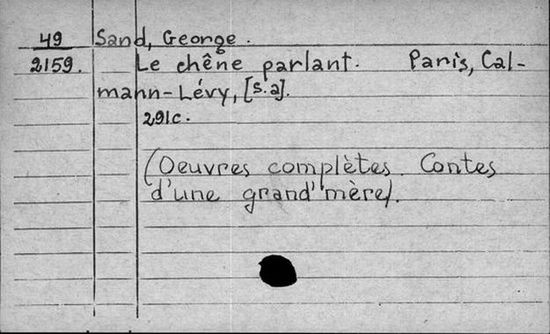 49 Sand, George.
2159. Le chêne parlant. Paris, Cal-
mann-Lévy, [s.a].
291c.
(Oeuvres complètes. Contes
d'une grand'mère).